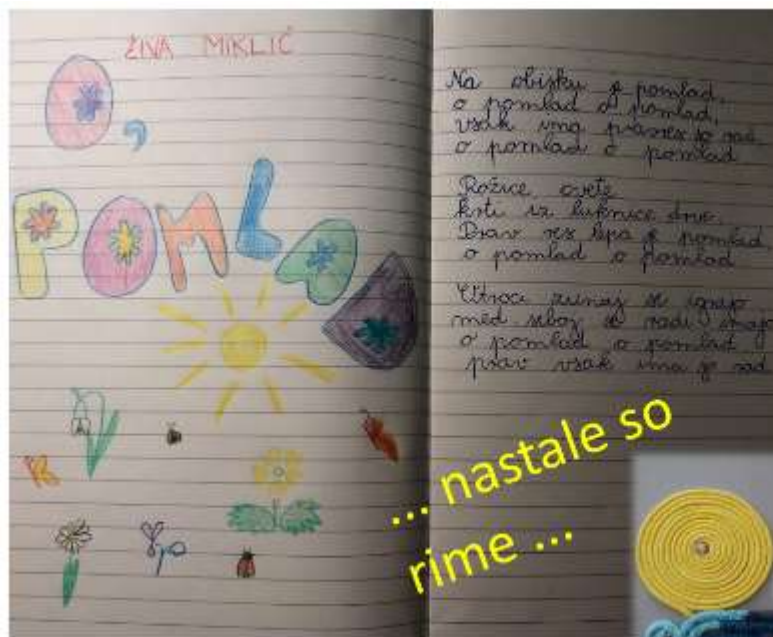 ŽIVA MIKLIĆ
O,
POMLAD
Na obisku je pomlad,
o pomlad o pomlad,
vsak ima rad,
o pomlad o pomlad
Rožice cvete
krti iz luknice
Prav res lepa je pomlad,
o pomlad o pomlad
Otroci zunaj se igrajo
med seboj se radi imajo
o pomlad o pomlad
prav vsak ima jo rad
... nastale so
rime ...